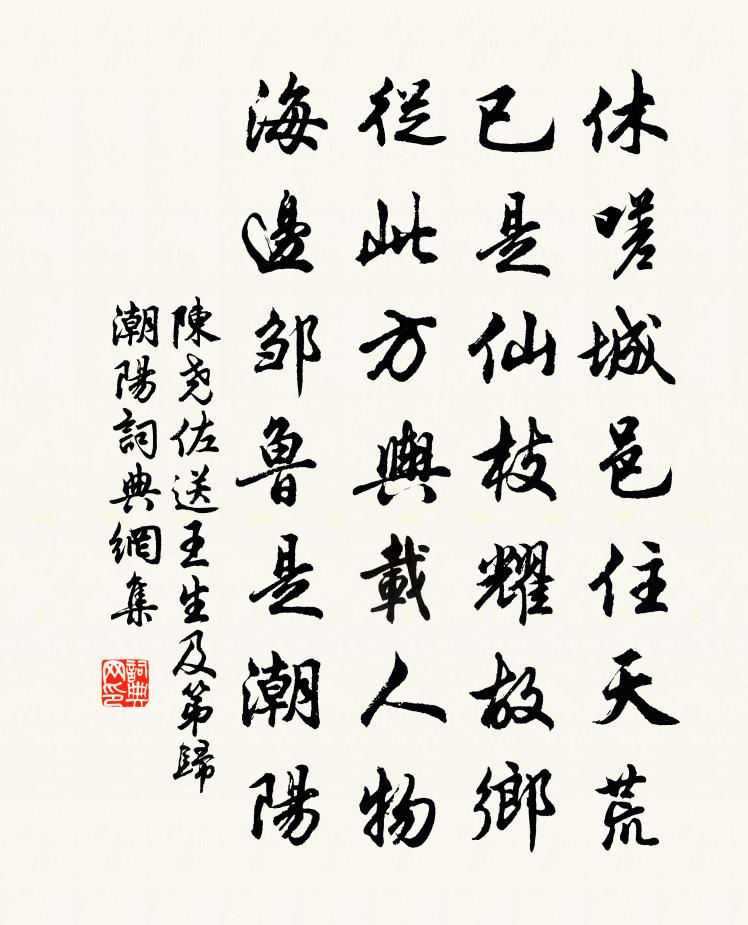 休嗟城邑住天荒
已是仙枝耀故鄉
從此方輿載人物
海邊邹魯是潮陽
陳尧佐送王生及第歸
潮陽詞典網集
詞典网印